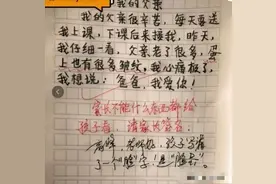 我的父亲
我的父亲很辛苦，每天要送
我上课，下课后来接我，昨天，
我仔细一看，父亲老了很多，蛋
上也有很多皱纹，我心痛极了，
我想说：爸爸，我爱你！
家长不能什么东西都给
孩子看，
老师好，孩子写错
了一个"脸"字！是